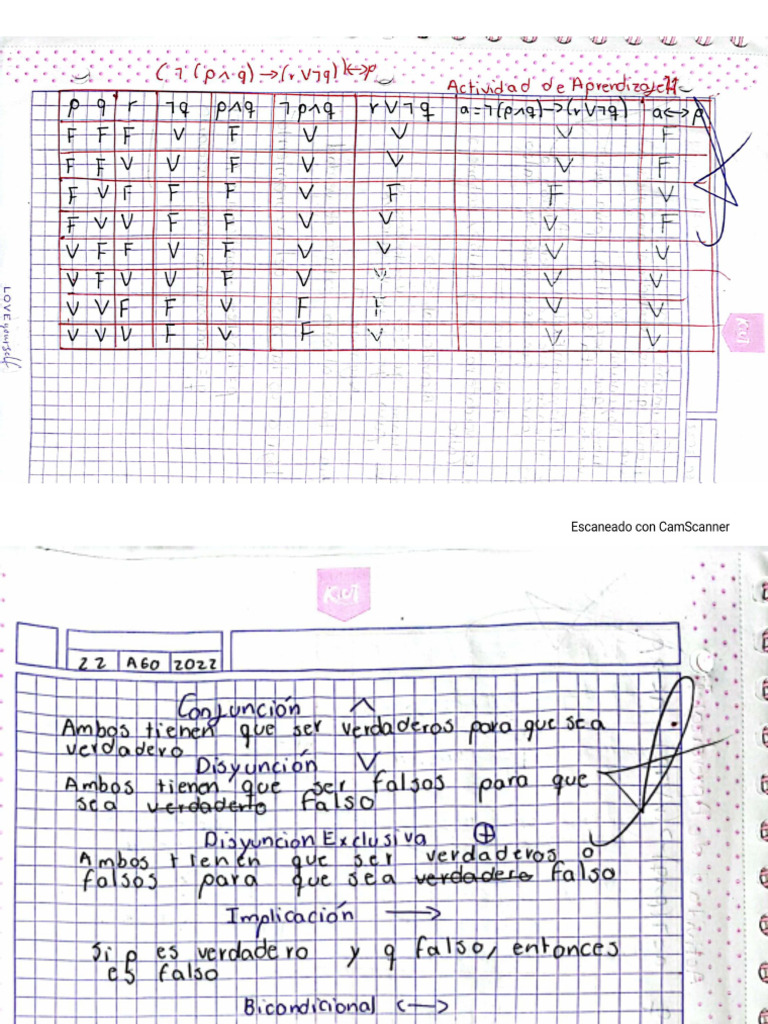 (¬(p∧q)→(r∨¬q))↔p
Actividad de Aprendizaje 11
p q r ¬q p∧q ¬p∧q r∨¬q a=¬(p∧q)→(r∨¬q) a↔p
F F F V F V V V F
F F V V F V V V F
F V F F F V F F V
F V V F F V V V F
V F F V F V V V V
V F V V F V V V V
V V F F V F F V V
V V V F V F V V V
LOVE yourself
KIUT
Escaneado con CamScanner
KIUT
22 AGO 2022
Conjunción ∧
Ambos tienen que ser verdaderos para que sea
verdadero
Disyunción ∨
Ambos tienen que ser falsos para que
sea verdaderto falso
Disyuncion Exclusiva ⊕
Ambos tienen que ser verdaderos o
falsos para que sea verdadero falso
Implicación →
Si p es verdadero y q falso, entonces
es falso
Bicondicional ↔